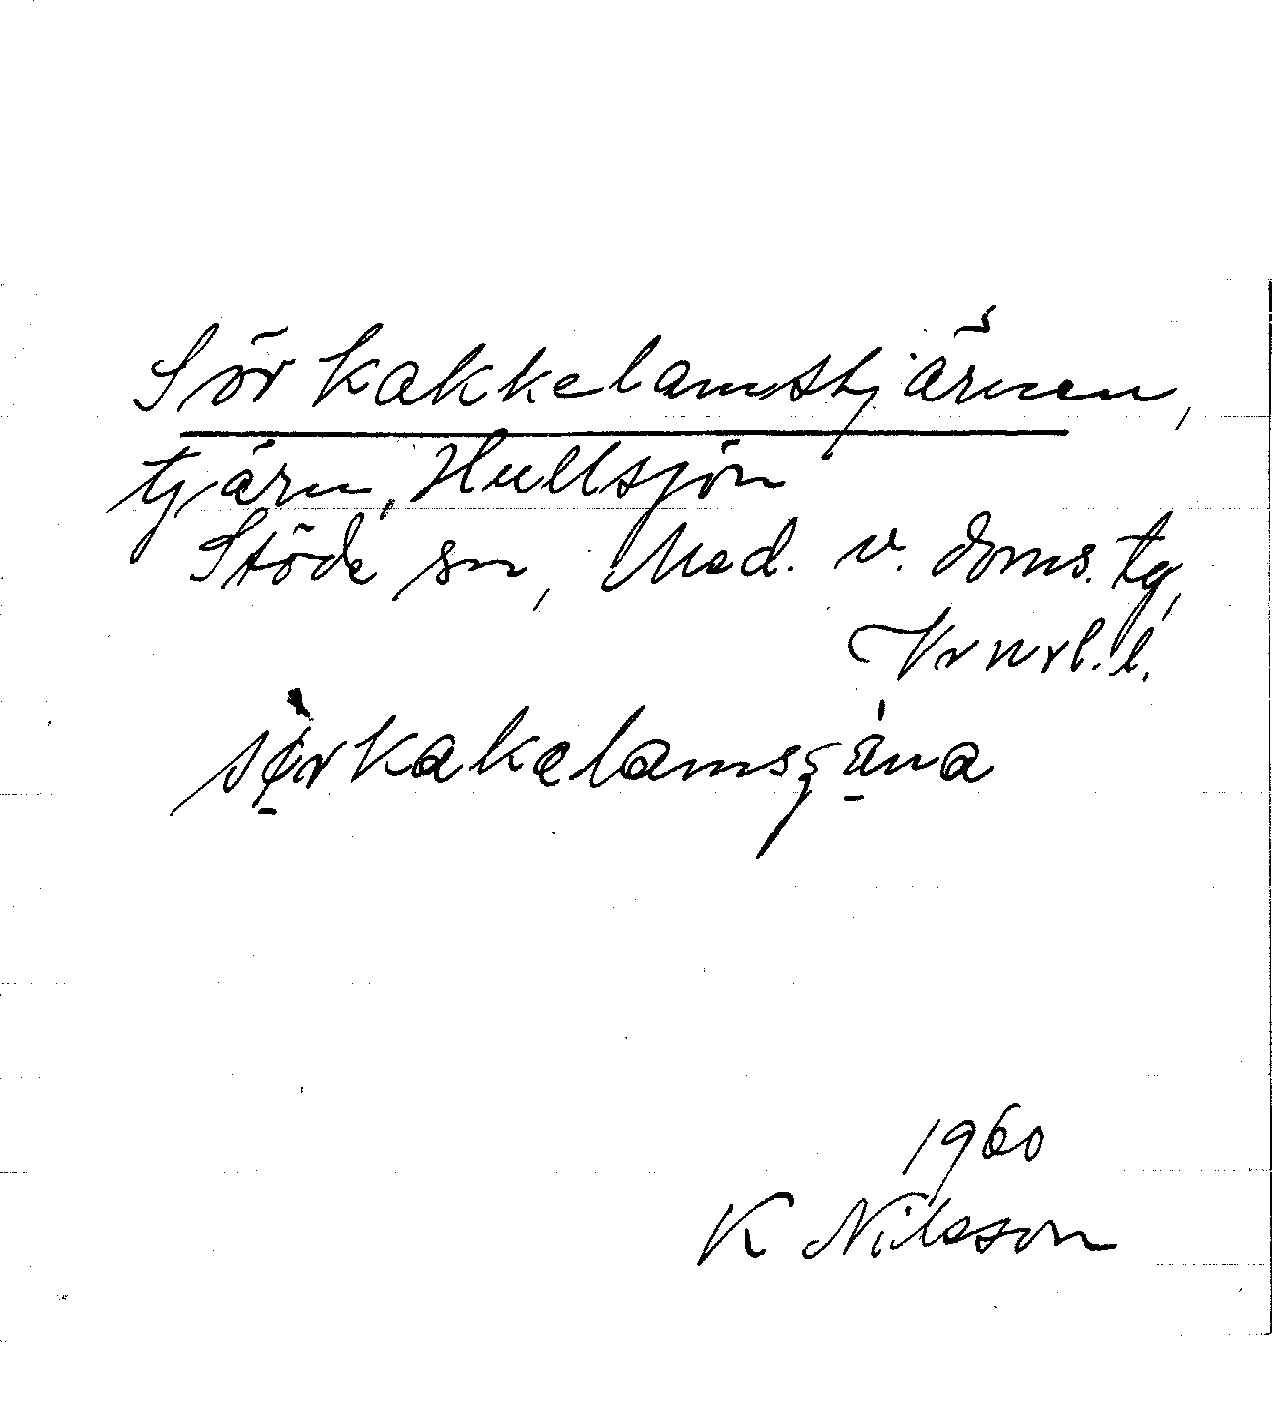 Sörkakkelamstjärnen,
tjärn, Hullsjön
Stöde sn, Med. v. doms. tg,
Vrnrl. l.
sørkakelamsʒäna
1960
K Nilsson